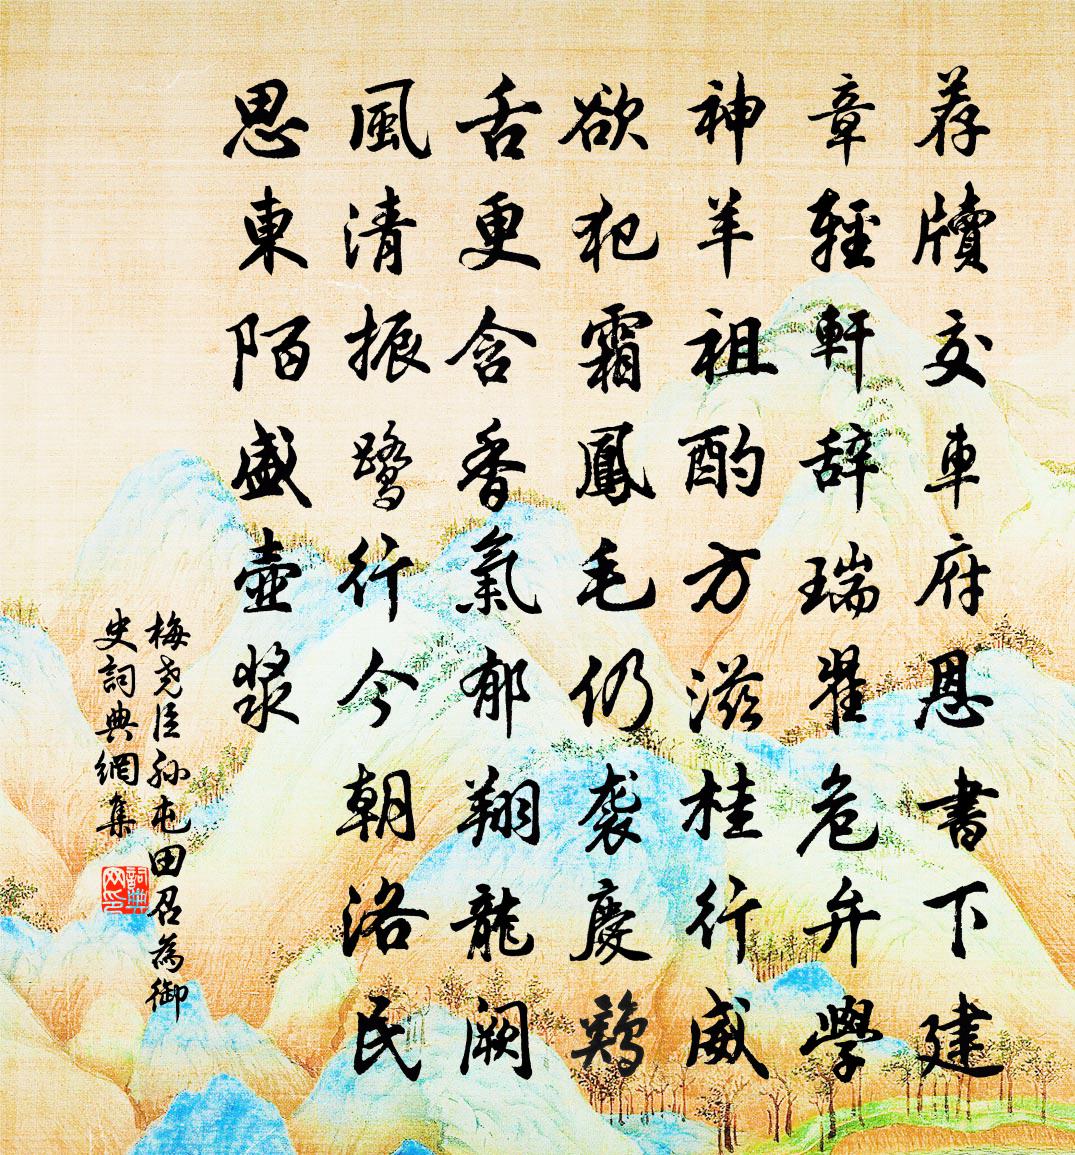 荐牍交車府恩書下建
章輕軒辞瑞翟危弁學
神羊祖酌方滋桂行威
欲犯霜鳳毛仍袭慶鷄
舌更含香氣郁翔龍阙
風清振鹭行今朝洛民
思東陌盛壺漿
梅尧臣孙屯田召為御
史詞典網集
詞典网印